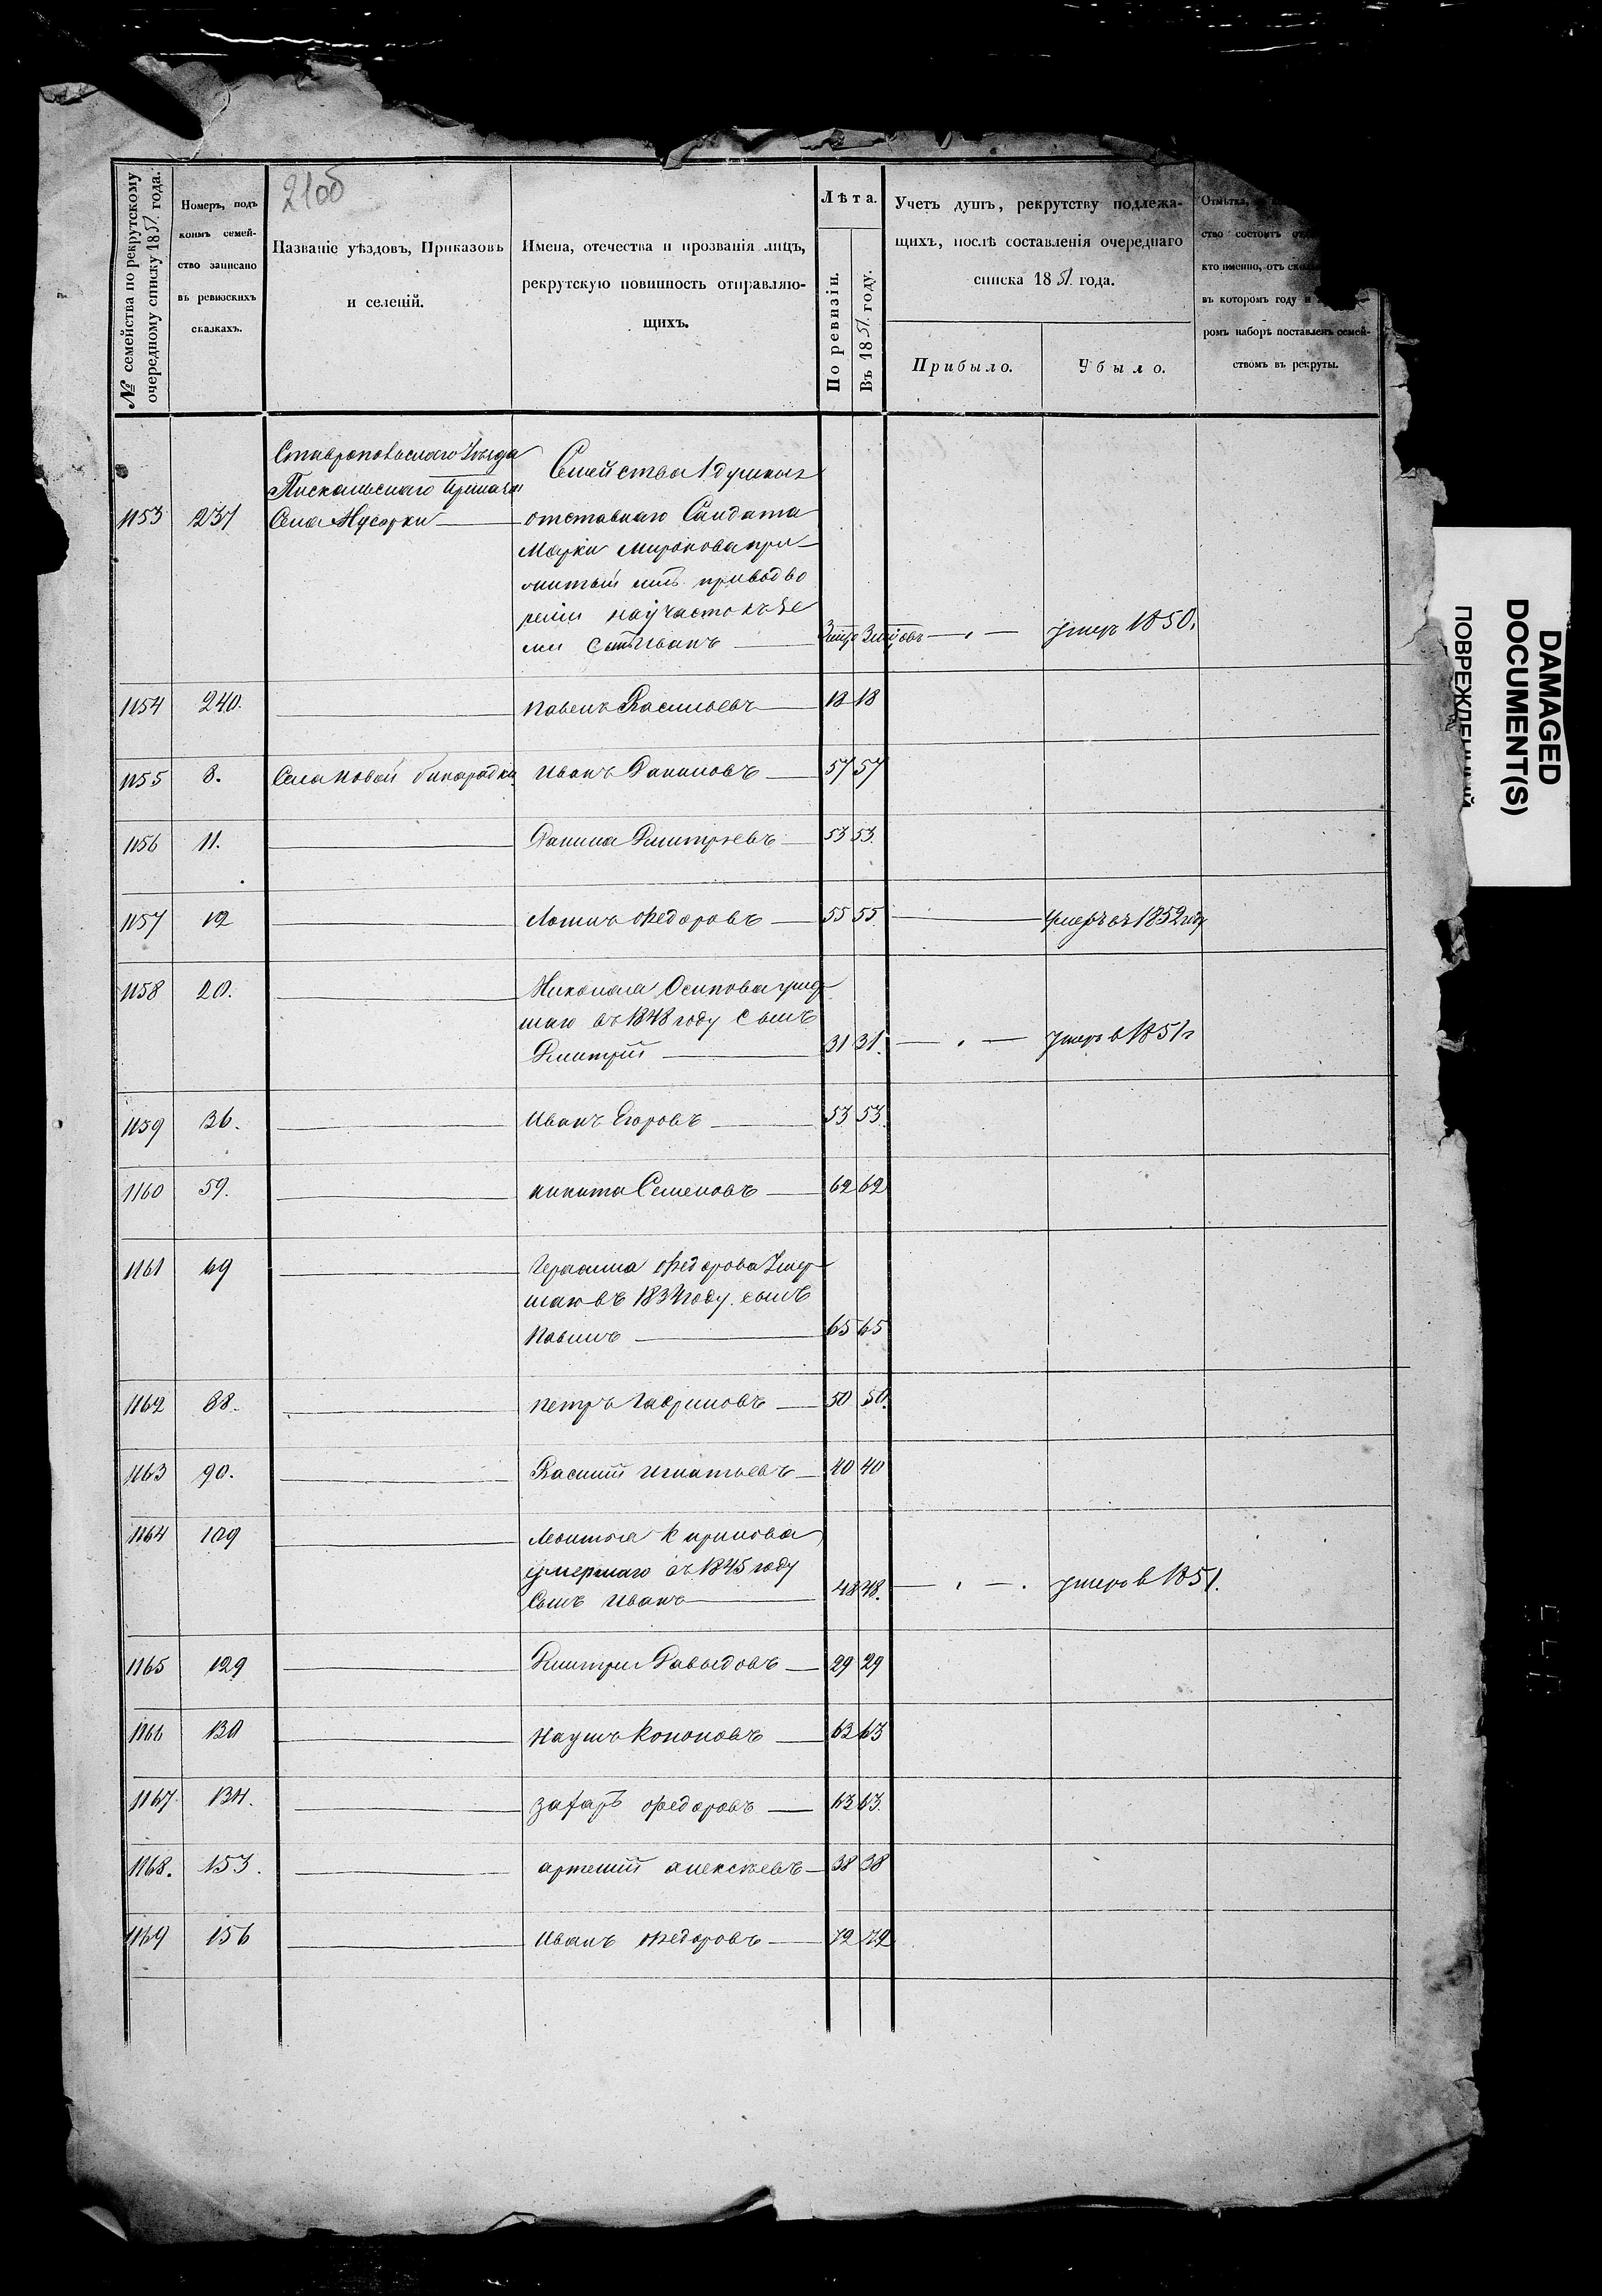 2106
№ семейства по рекрутскому
очередному списку 1851 года.
Номеръ, подъ
коимъ семей-
ство записано
въ ревизскихъ
сказкахъ.
Названіе уѣздовъ, Приказовъ
и селеній.
Имена, отечества и прозванія лицъ,
рекрутскую повинность отправляю-
щихъ.
Лѣта.
По ревизіи.
Въ 1851 году.
Учетъ душъ, рекрутству подлежа-
щихъ, послѣ составленія очереднаго
списка 1851 года.
Прибыло.
Убыло.
Отмѣтка,
ство состоитъ
кто именно, отъ
въ которомъ году и
ромъ наборѣ поставленъ семей-
ствомъ въ рекруты.
Ставропольскаго Уѣзда
Пискальскаго Приказа
Семейства 1 душныя
1153 237 Села Мусорки отставнаго Салдата
Марки Миронова при-
ми Сынъ Иванъ умеръ 1850.
1154 240. Павелъ Васильевъ 18 18
1155 8. Села Новой бинарадки Иванъ Даниловъ 57 57
1156 11. Данила Дмитріевъ 53 53.
1157 12 Логинъ Федоровъ 55 55 умеръ въ 1852 году
1158 20. Николая Осипова умер-
шаго въ 1848 году сынъ
Дмитрій 31 31. умеръ в 1851 г
1159 36. Иванъ Егоровъ 53 53.
1160 59. никита Семеновъ 62 62
1161 69 Герасима Федорова Умер-
шаго въ 1834 году. сынъ
Павилъ 65 65
1162 88. петръ Гавриловъ 50 50.
1163 90. Василій Игнатьевъ 40 40
1164 109 Леонтья Кирилова
умершаго въ 1845 году
Сынъ Иванъ 48 48. умеръ в 1851.
1165 129 Дмитри Давыдовъ 29 29
1166 130 Наумъ Кононовъ 63 63
1167 134. захаръ Федоровъ 63 63.
1168. 153. артемій алексѣевъ 38 38
1169 156 Иванъ Федоровъ 72 72
DAMAGED
DOCUMENT(S)